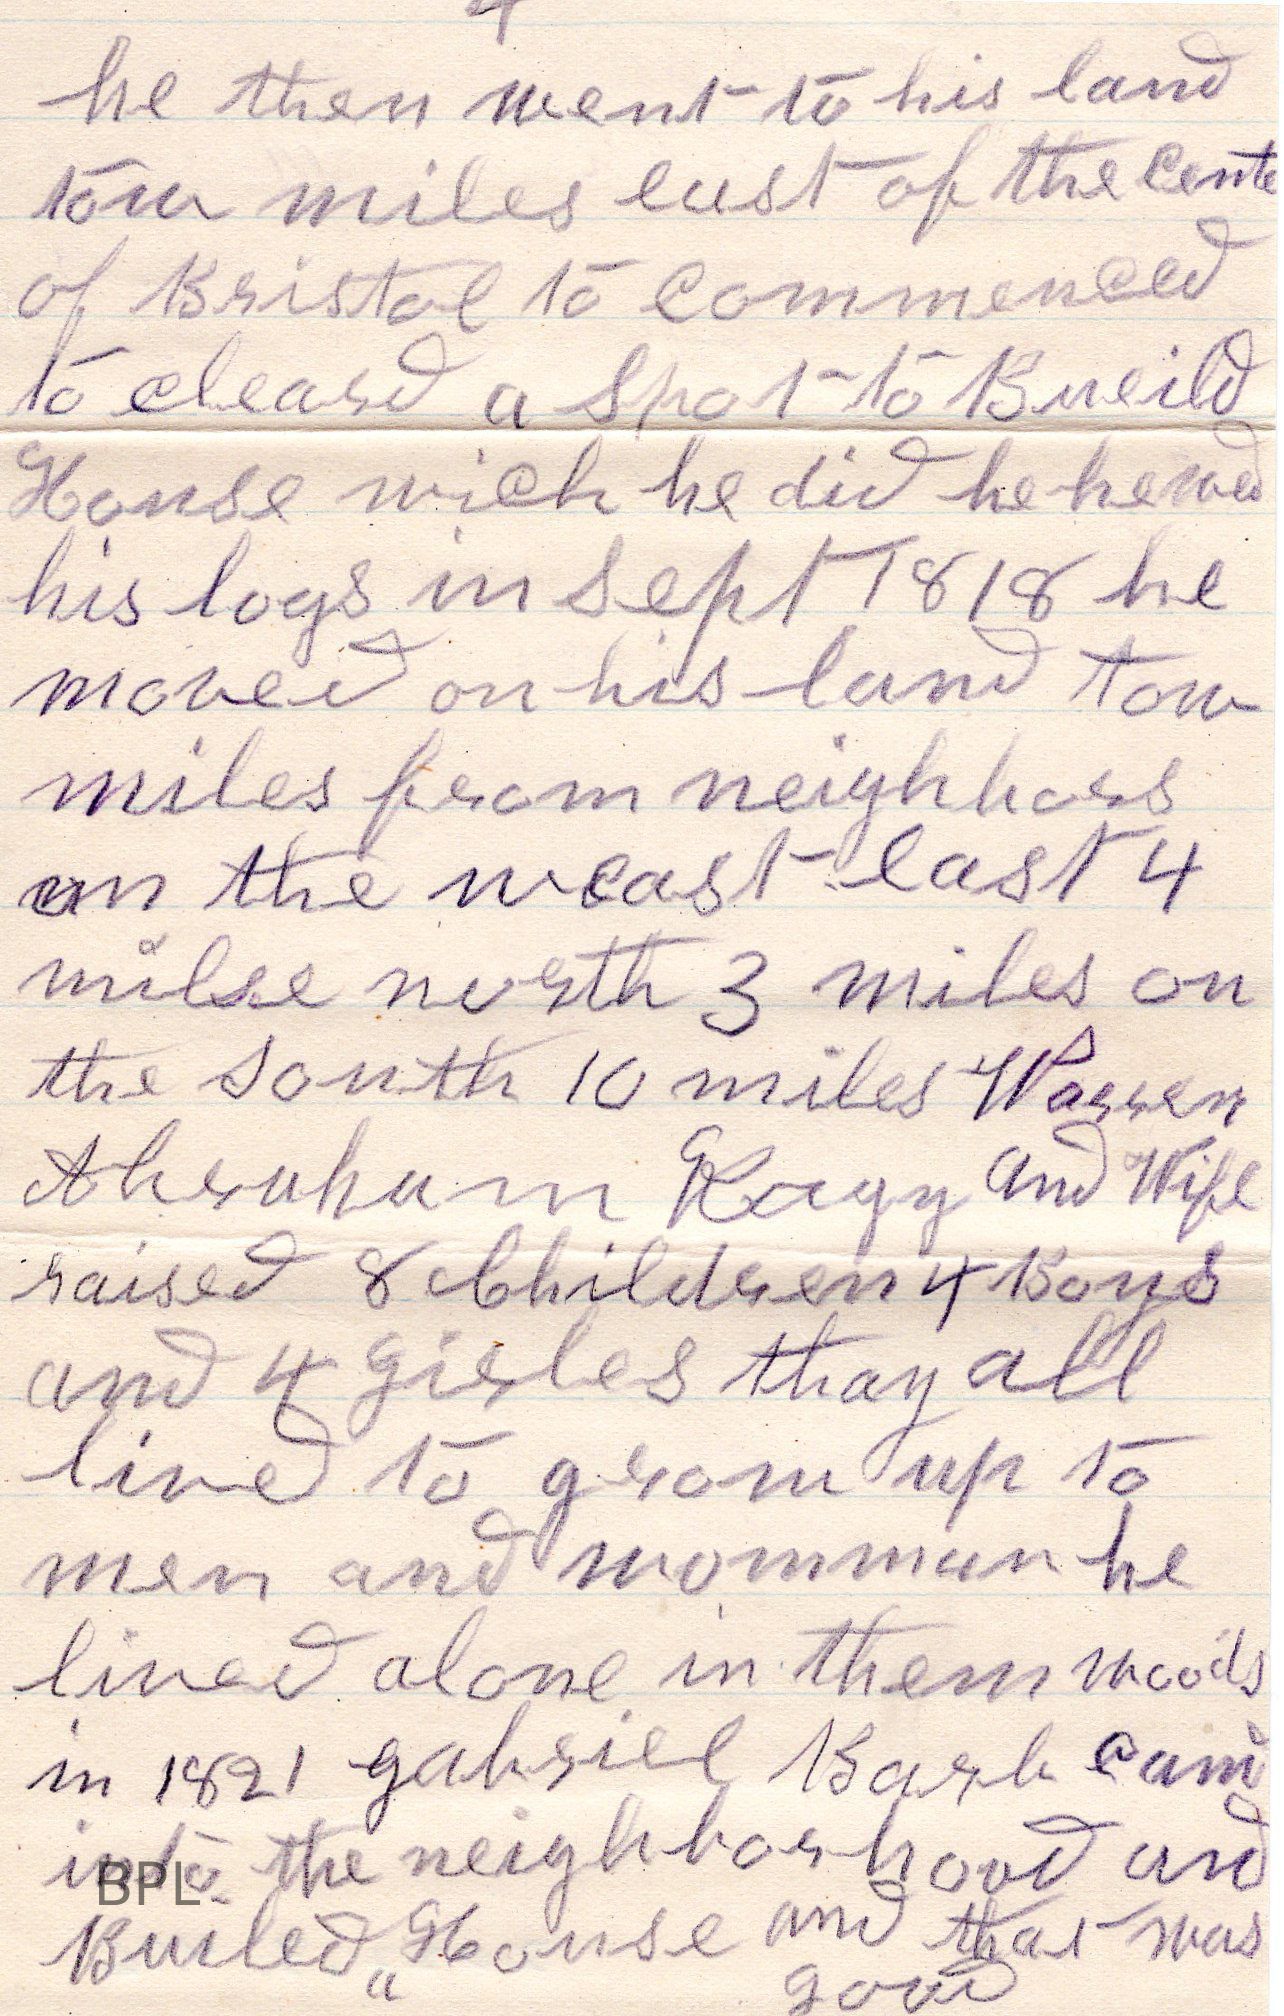 4
he then went to his land
tow miles east of the cente
of Bristol to commenced
to cleard a spot to Bueild
House wich he did he hewed
his logs in Sept 1818 he
moved on his land tow
miles from neighbors
on the weast east 4
milse north 3 miles on
the south 10 miles Warren
Abraham Kagy and Wife
raised 8 Children 4 Boys
and 4 Girles thay all
lived to grow up to
men and womman he
lived alone in them woods
in 1821 gabriel Barb cam
into the neighborhood and
Builed a House and that was
good
BPL